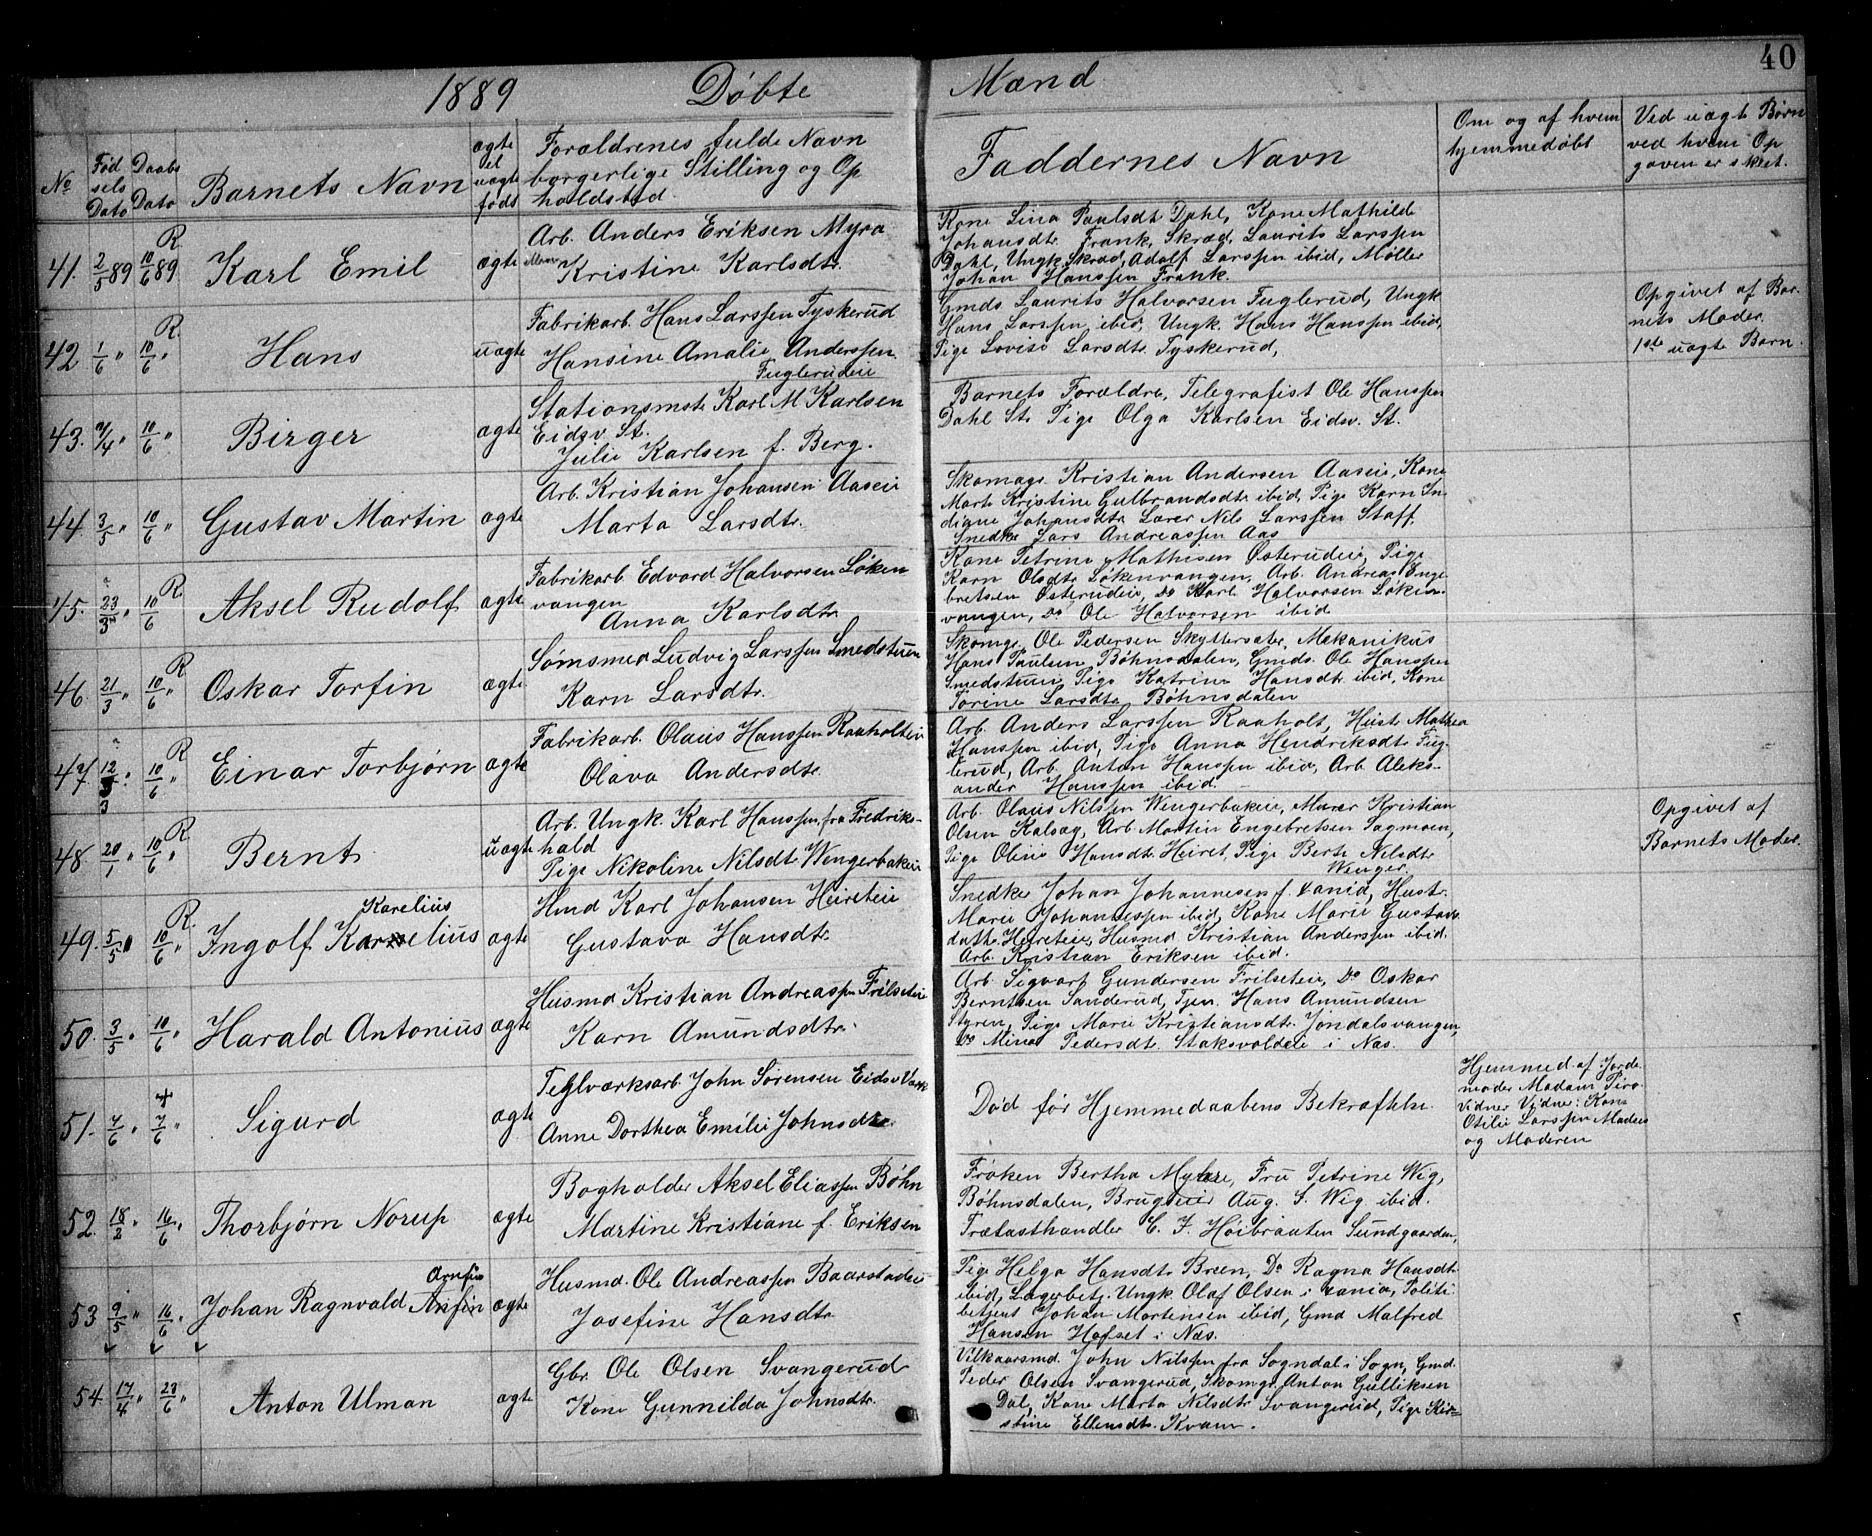 40
1889 Døbte Mænd
No
Fødsels Dato
Daabs Dato
Barnets Navn
ægte el uægte født
Forældrenes fulde Navn
borgerlige Stilling og Op
holdsted.
Faddernes Navn
Om og af hvem
hjemmedøbt
Ved uægte Børn
ved hvem Op
gaven er skeet.
41. 2/5 89 10/6 89 R. Karl Emil ægte
Arb. Anders Eriksen Myra
Kristine Karlsdtr.
Kone Lina Paulsdtr Dahl, Kone Mathilde
Johansdtr. Frank, Skræd. Laurits Larssen
Dahl, Ungk. Skræd. Adolf Larssen ibid, Møller
Johan Hanssen Frank.
42 1/6 " 10/6 " R. Hans uægte
Fabrikarb. Hans Larssen Tyskerud
Hansine Amalie Anderssen
Fuglerudeie
Gmds Laurits Halvorsen Fuglerud, Ungk
Hans Larssen ibid, Ungk. Hans Hanssen ibid,
Pige Lovise Larsdtr. Tyskerud,
Opgivet af Bar-
nets Moder.
1ste uægte Barn.
43. /4 " 10/6 " Birger ægte
Stationsmst. Karl M Karlsen
Eidsv. St.
Julie Karlsen f. Berg.
Barnets Forældre, Telegrafist Ole Hanssen
Dahl St. Pige Olga Karlsen Eidsv. St.
44. 3/5 " 10/6 " Gustav Martin ægte
Arb. Kristian Johansen Aaseie
Marta Larsdtr.
Skomag. Kristian Andersen Aaseie, Kone
Marte Kristine Gulbrandsdtr ibid, Pige Karn In-
diane Johansdtr. Lærer Nils Larssen Staff,
Snedker Lars Andreassen Aas
45. 23/3 " 10/6 R. Aksel Rudolf ægte
Fabrikarb. Edvard Halvorsen Løken
vangen
Anna Karlsdtr.
Kone Petrine Mathisen Østerudeie, Pige
Karn Olsdtr. Løkenvangen, Arb. Andreas Inge-
bretsen Østerudeie, Do Karl Halvorsen Løken-
vangen, Do Ole Halvorsen ibid
46. 21/3 " 10/6 " R Oskar Torfin ægte
Sømsmed Ludvig Larssen Smedstuen
Karn Larsdtr.
Skomgr. Ole Pedersen Skyttersæter, Mekanikus
Hans Paulsen Bøhnsdalen, Gmds. Ole Hanssen
Smedstuen, Pige Katrine Hansdtr. ibid, Kone
Torine Larsdtr. Bøhnsdalen
47. 12/3 " 10/6 " R Einar Torbjørn ægte
Fabrikarb. Olaus Hanssen Raaholteie
Olava Andersdtr.
Arb. Anders Larssen Raaholt, Hustr. Mathea
Hanssen ibid, Pige Anna Hendriksdtr. Fug-
lerud, Arb. Anton Hanssen ibid, Arb. Aleks-
ander Hanssen ibid.
48. 20/1 " 10/6 " R. Bernt uægte
Arb. Ungk. Karl Hanssen, fra Fredriks-
hald
Pige Nikoline Nilsdtr. Wengerbakeie
Arb. Olaus Nilssen Wengerbakeie, Murer Kristian
Olsen Kalsæg, Arb. Martin Engebretsen Sagmoen,
Pige Oline Hansdtr. Heiret, Pige Berte Nilsdtr
Wenger.
Opgivet af
Barnets Moder.
49. 5/5 10/6 " R. Ingolf Karelius
Karelius ægte
Hmd Karl Johansen Heireteie
Gustava Hansdtr.
Snedker Johan Johannesen f. ania, Hustr.
Marie Johannessen ibid, Kone Marie Gustavs
datter Heireteie, Husmd Kristian Anderssen ibid.
Arb. Kristian Eriksen ibid.
50. 3/5 " 10/6 " Harald Antonius ægte
Husmd Kristian Andreassen Frilseteie
Karn Amundsdtr.
Arb. Sigvart Gundersen Frilseteie, Do Oskar
Berntsen Sanderud, Tjen. Hans Amundsen
Styren, Pige Marie Kristiansdtr. Jøndalsvangen,
Do Mina Pedersdtr. Staksvoldeie i Næs.
51. 7/6 " 7/6 " Sigurd ægte
Teglværksarb. John Sørensen Eidsv Værk
Anne Dorthea Emilie Johnsdtr.
Død før Hjemmedaabens Bekræftelse.
Hjemmed. af Jorde
moder Madam Piro.
Vidner Vidner: Kone
Otilie Larssen
og Moderen
52. 18/2 " 16/6 " Thorbjørn Norup ægte
Bogholder Aksel Eliassen Bøhn
Martine Kristiane f. Eriksen
Frøken Bertha Myhre, Fru Petrine Wig,
Bøhnsdalen, Brugseier Aug. S. Wig ibid.
Trælasthandler C. F. Høibraaten Sundgaarden,
53 9/5 " 16/6 " Johan Ragnvald Anfin
Arnfin ægte
Husmd. Ole Andreassen Baarstadeie
Josefine Hansdtr.
Pige Helga Hansdtr. Breen, Do Ragna Hansdtr.
ibid, Lagerbetj. Ungk. Olaf Olsen i ania, Politi-
betjent Johan Martensen ibid, Gmd Malfred
Hansen Hofset i Næs.
54 17/4 " 23/6 " Anton Ulman ægte
Gbr. Ole Olsen Svangerud
Kone Gunnilda Johnsdtr.
Vilkaarsmd. John Nilssen fra Sogndal i Sogn, Gmd.
Peder Olsen Svangerud, Skomgr. Anton Gulliksen
Dal, Kone Marta Nilsdtr Svangerud, Pige Kir-
stine Ellensdtr. Kvam.